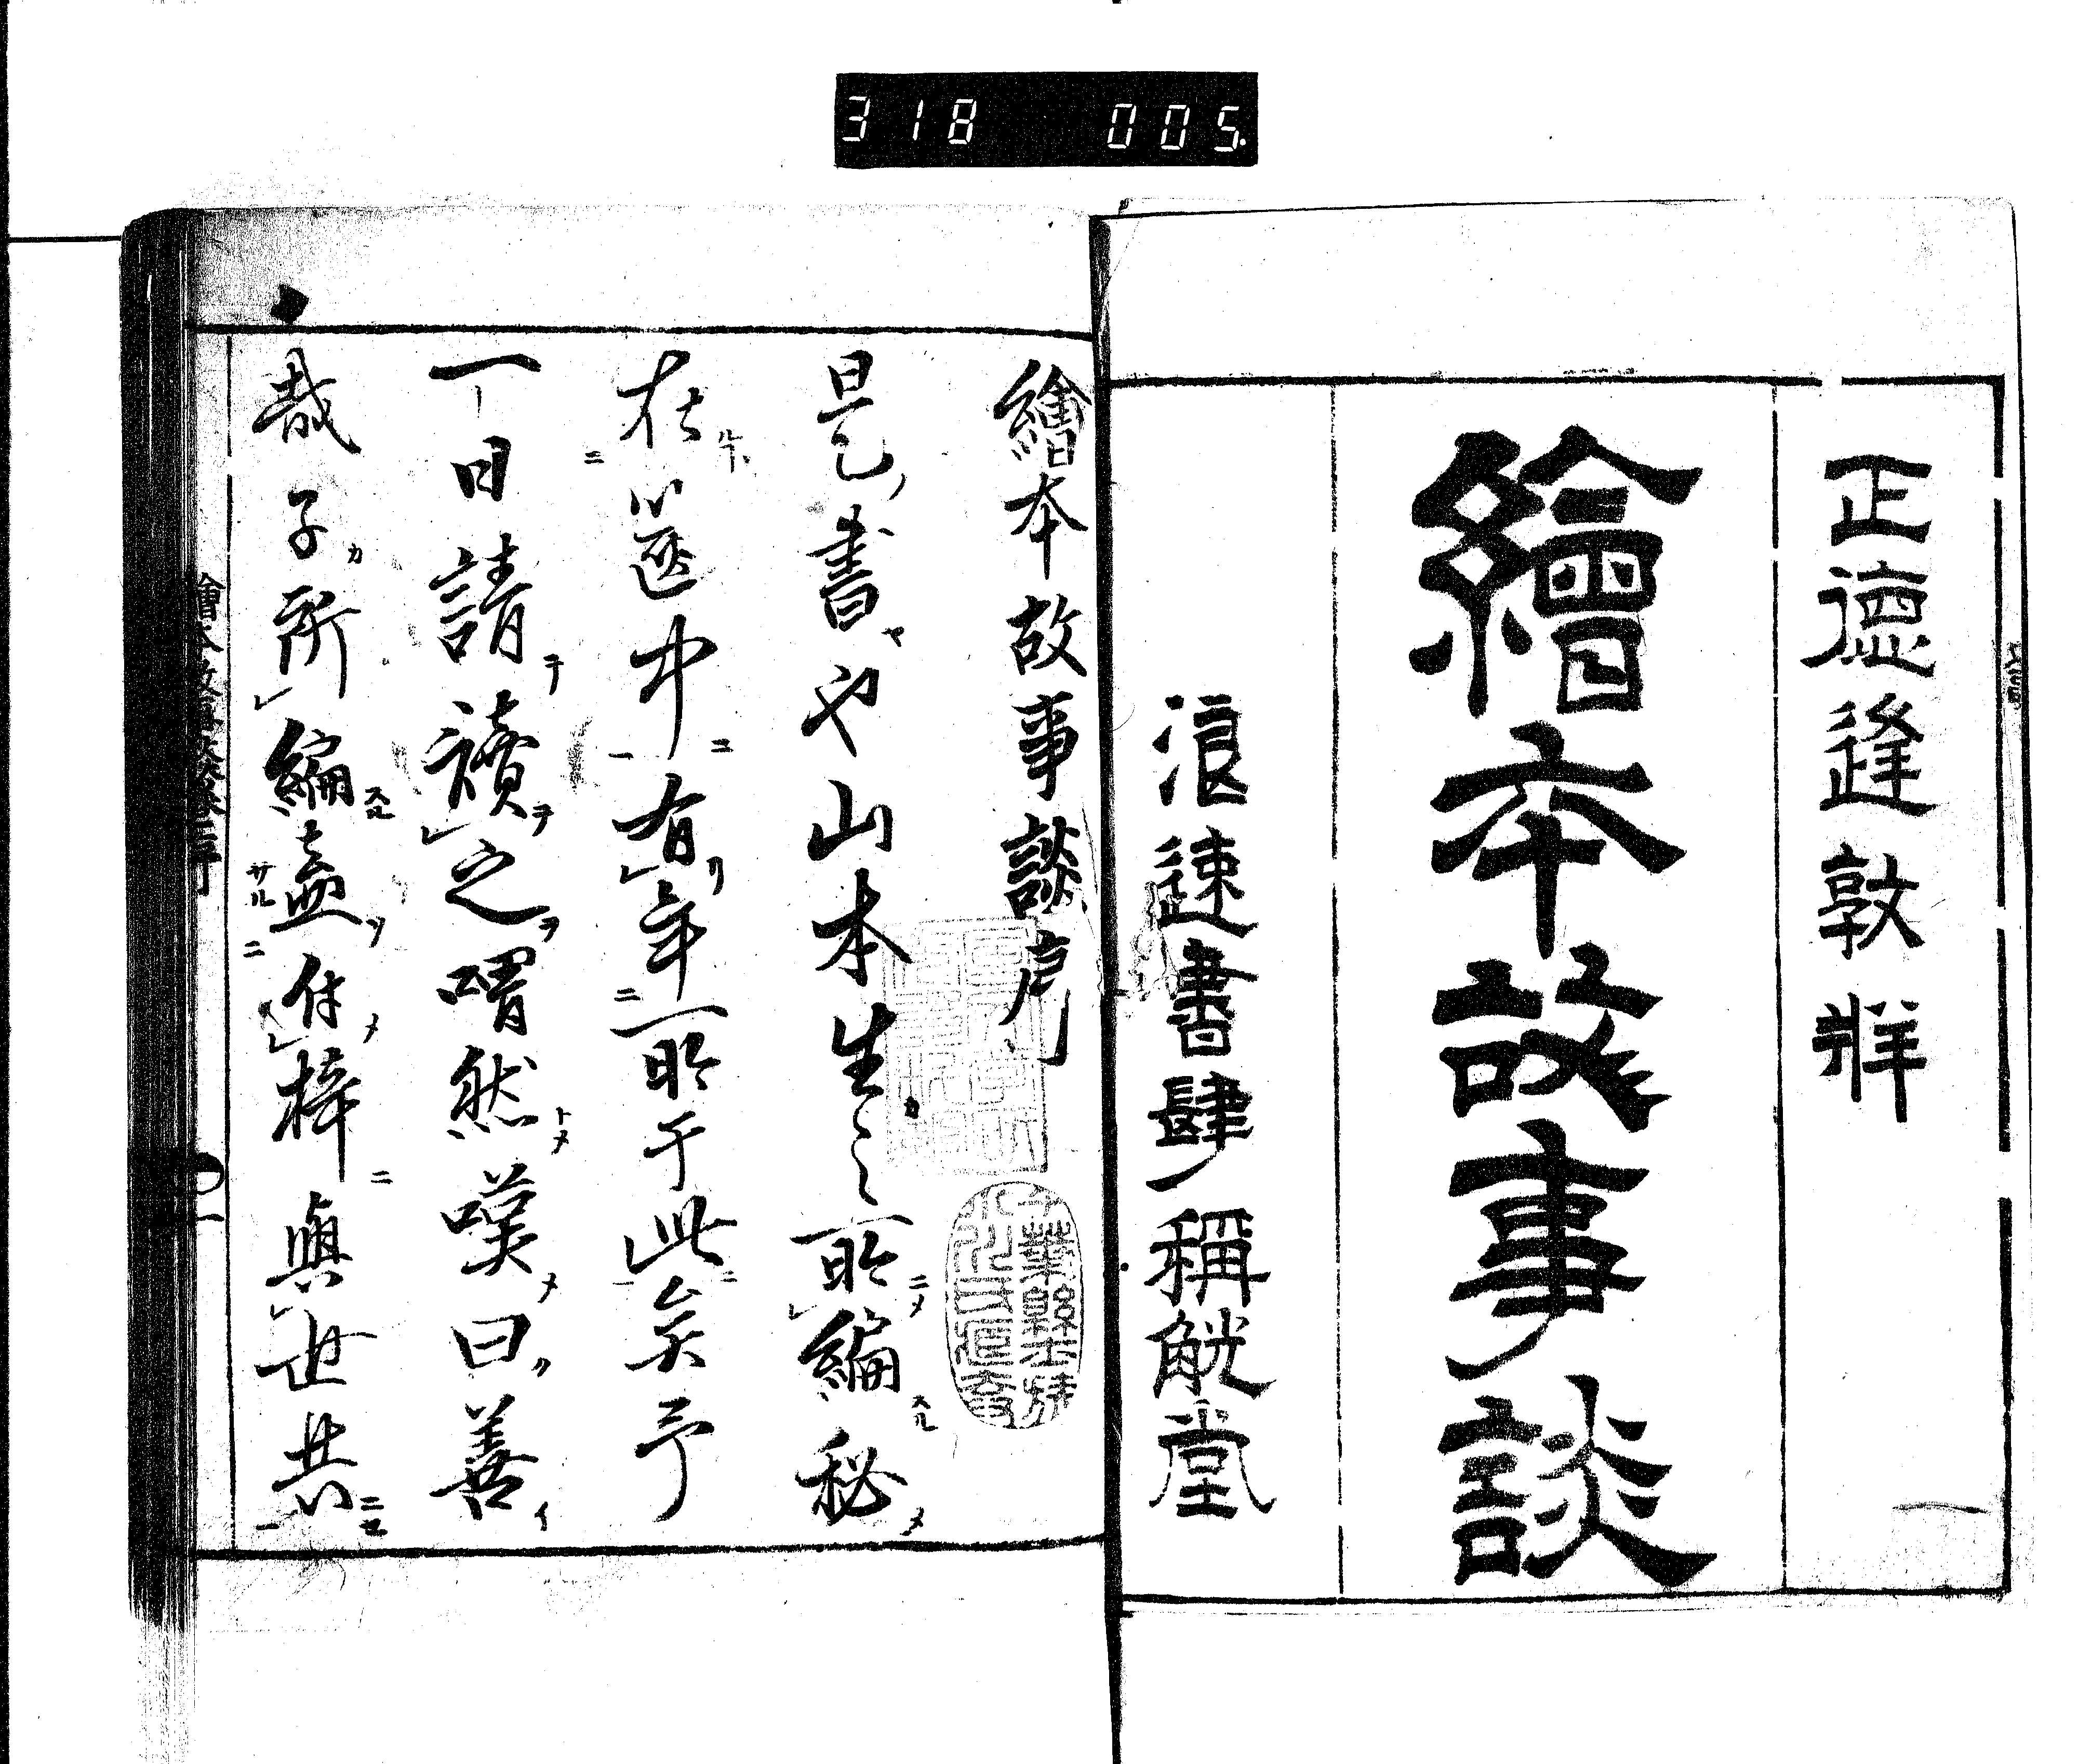 318 005
正德逢敦牂
繪本故事談
浪速書肆稱觥堂
繪本故事談序
是書也山本生之所編秘
在篋中有年所于此矣予
一日請讀之喟然嘆曰善
哉子所編盍付梓與世共